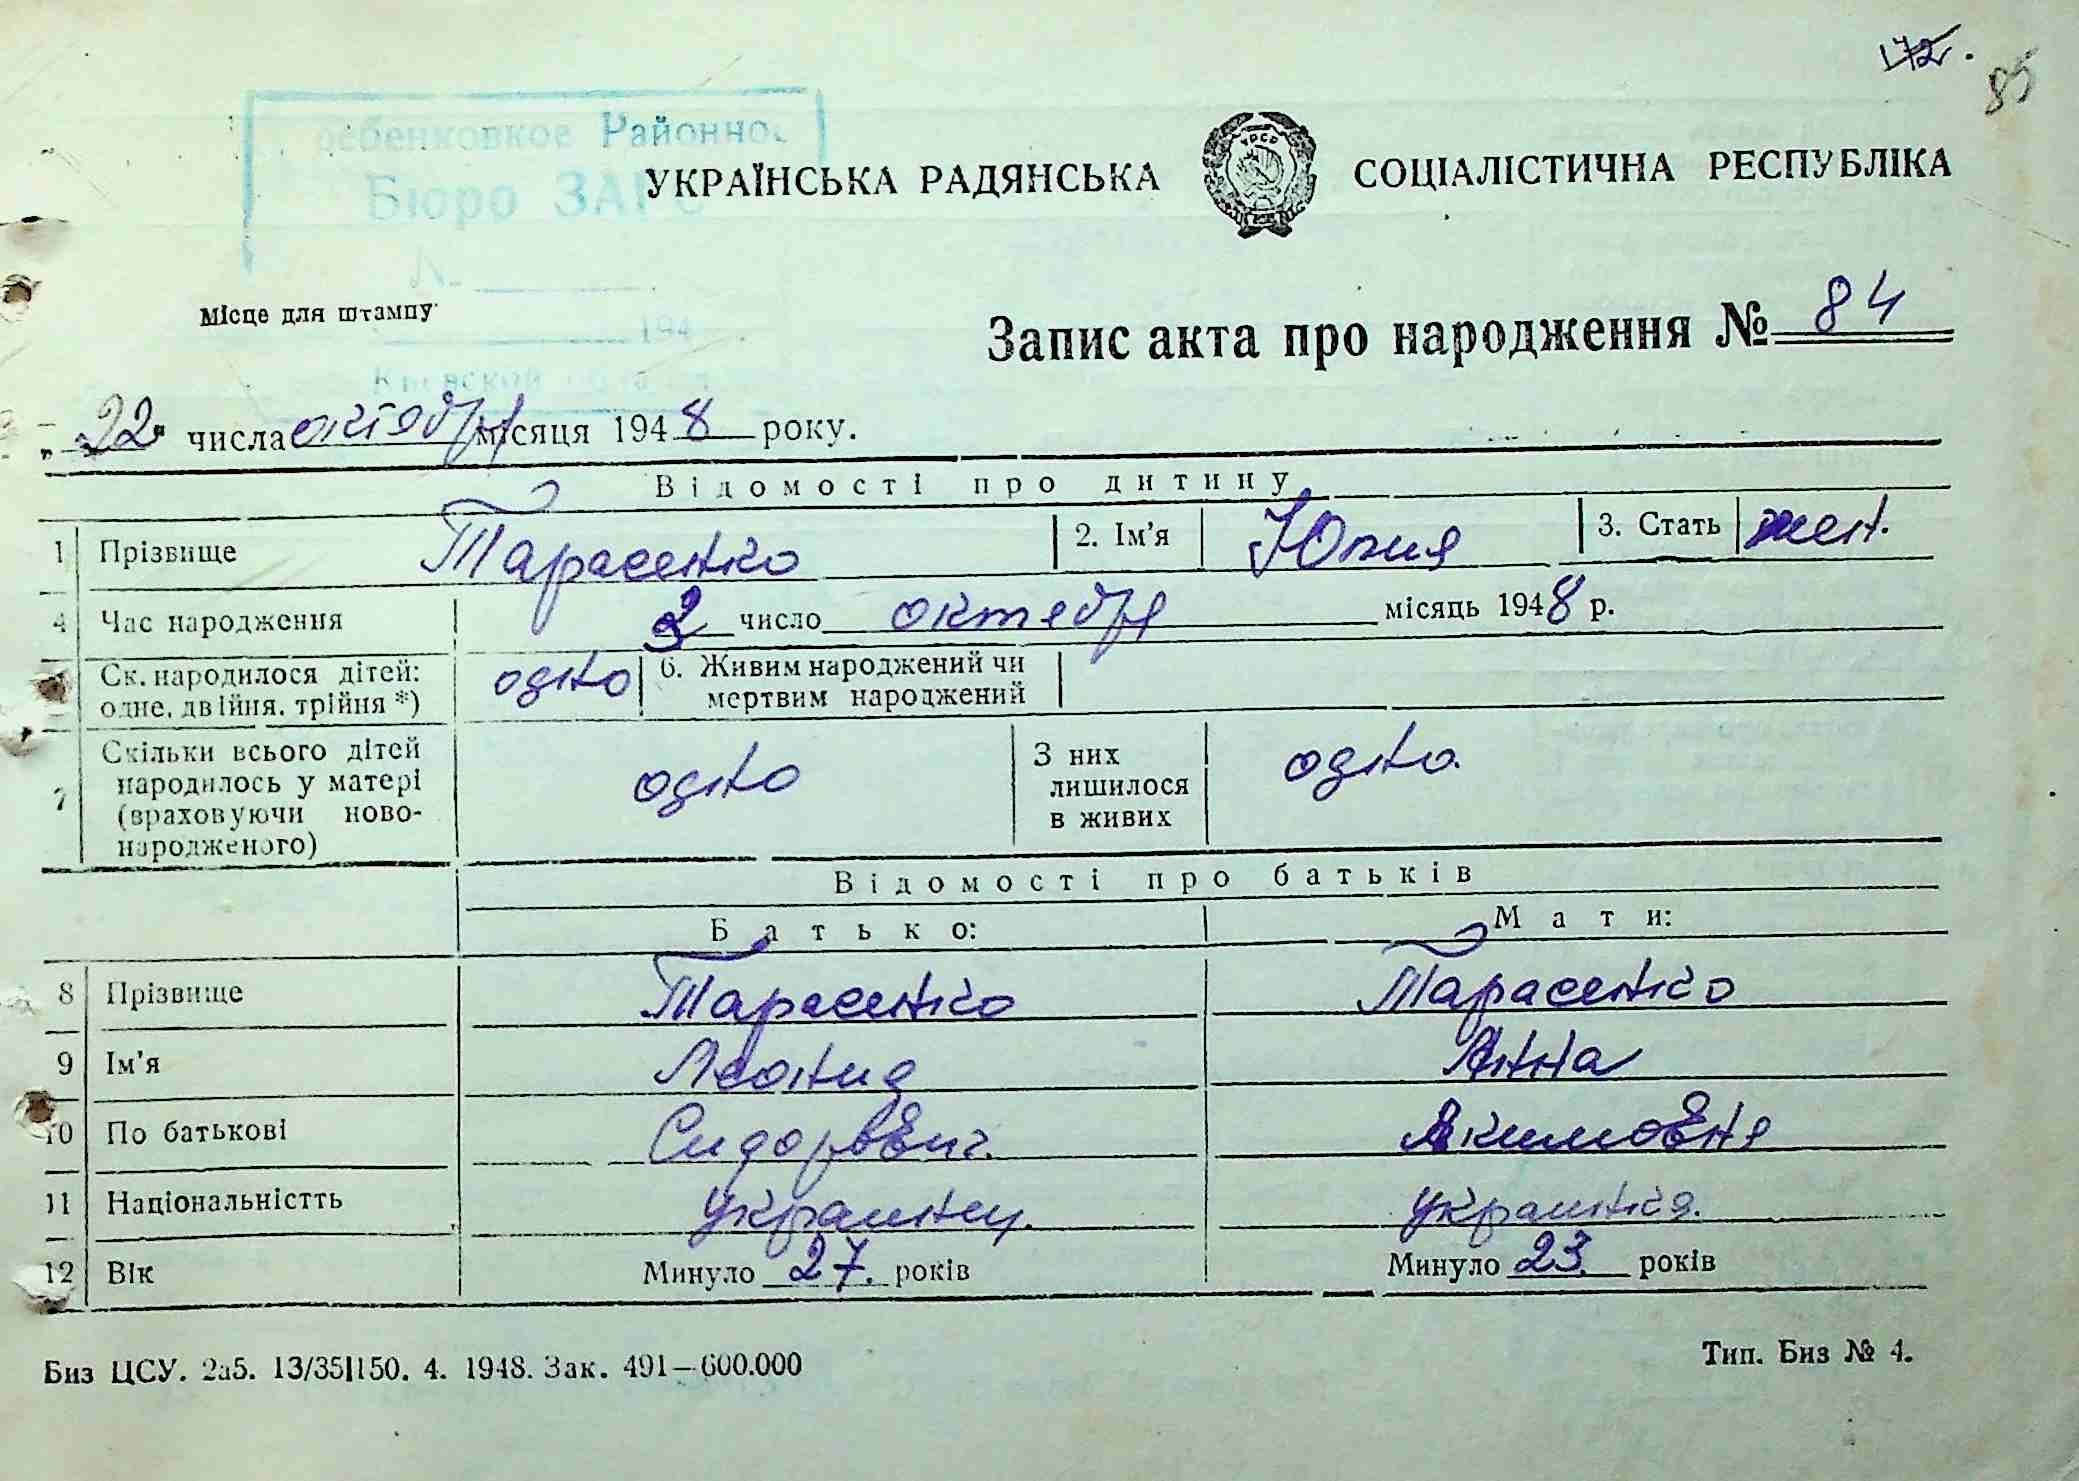 172.
85
ребенковкое Районное
Бюро ЗАГС
УКРАЇНСЬКА РАДЯНСЬКА СОЦІАЛІСТИЧНА РЕСПУБЛІКА
УРСР
№
Місце для штампу
194
Киевской
Запис акта про народження № 84
„22" числа октября місяця 1948 року.
Відомості про дитину
1 Прізвище Тарасенко 2. Ім'я Юлия 3. Стать жен.
4 Час народження 2 число октября місяць 1948 р.
Ск. народилося дітей: одно 6. Живим народжений чи
одне, двійня, трійня *) мертвим народжений
7 Скільки всього дітей народилось у матері (враховуючи новонародженого) одно З них лишилося в живих одно.
Відомості про батьків
Батько: Мати:
8 Прізвище Тарасенко Тарасенко
9 Ім'я Леонид Анна
10 По батькові Сидорович. Акимовна
11 Національністть украинец. украинка.
12 Вік Минуло 27. років Минуло 23. років
Биз ЦСУ. 2а5. 13/35|150. 4. 1948. Зак. 491–600.000
Тип. Биз № 4.